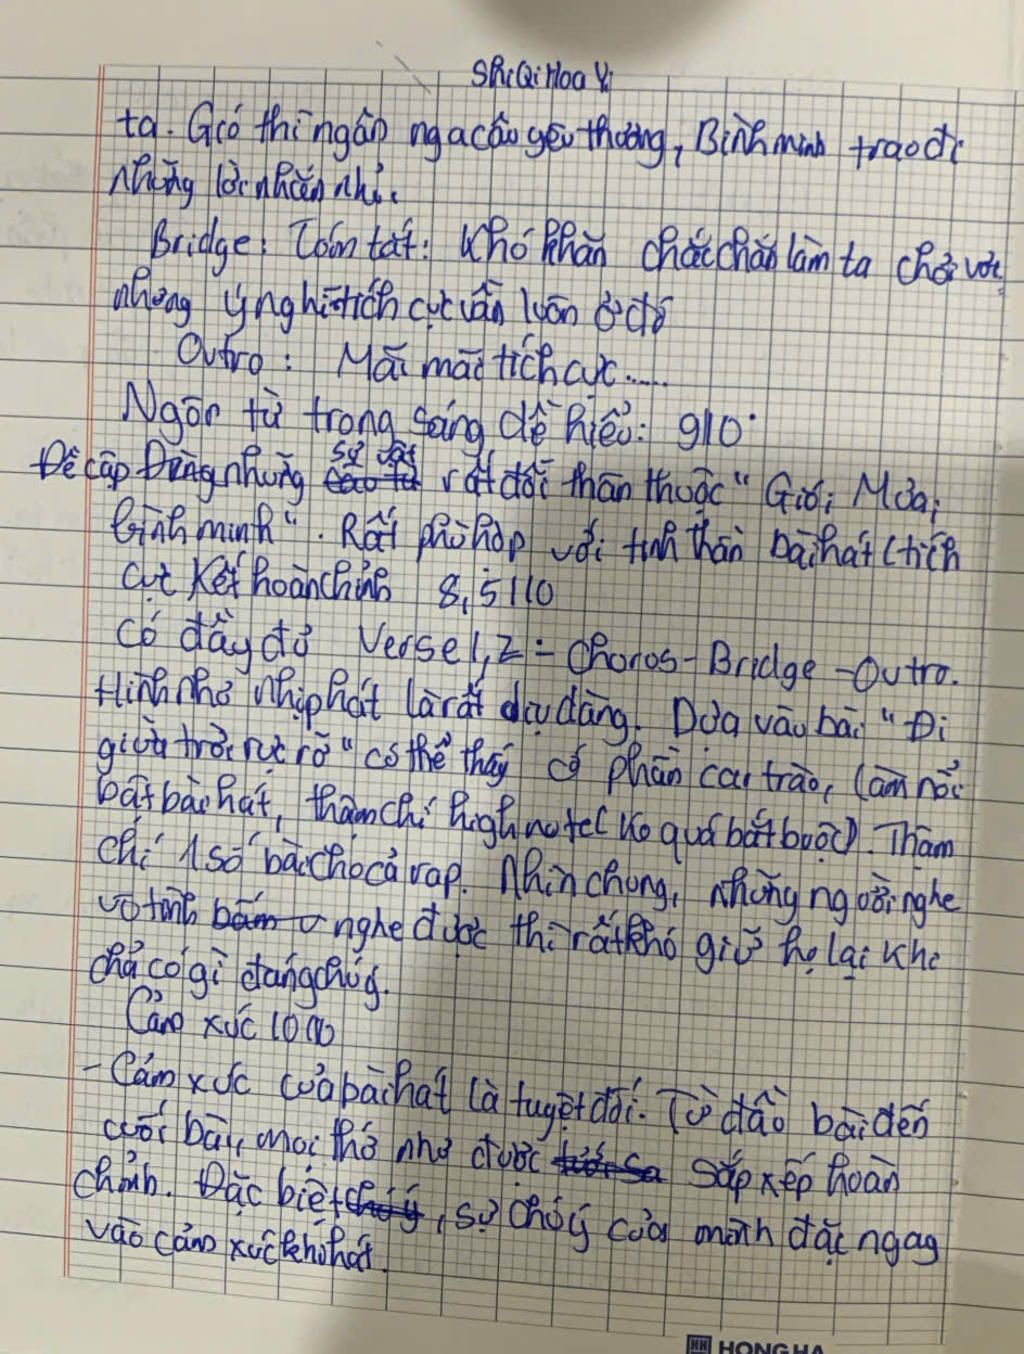 ShiQiHoa Y
ta. Gió thì ngân nga câu yêu thương, Bình minh trao đi
những lời nhắn nhủ.
Bridge: Tóm tắt: Khó khăn chắc chắn làm ta chơi vơi,
nhưng ý nghĩ tích cực vẫn luôn ở đó
Outro: Mãi mãi tích cực.....
Ngôn từ trong sáng dễ hiểu: 9/10
Đề cập Dùng những sự vật rất đỗi thân thuộc "Gió; Mưa;
bình minh". Rất phù hợp với tinh thần bài hát (tích
cực Kết hoàn chỉnh 8,5/10
Có đầy đủ Verse 1,2 - Choros - Bridge - Outro.
Hình như nhịp hát là rất dịu dàng. Dựa vào bài "Đi
giữa trời rực rỡ" có thể thấy có phần cao trào, làm nổi
bật bài hát, thậm chí high note (ko quá bắt buộc). Thậm
chí 1 số bài cho cả rap. Nhìn chung, những người nghe
vô tình nghe được thì rất khó giữ họ lại khi
chả có gì đáng chú ý.
Cảm xúc 10/10
- Cảm xúc của bài hát là tuyệt đối. Từ đầu bài đến
cuối bài, mọi thứ như được sắp xếp hoàn
chỉnh. Đặc biệt, sự chú ý của mình đặt ngay
vào cảm xúc khi hát.
HONG HA